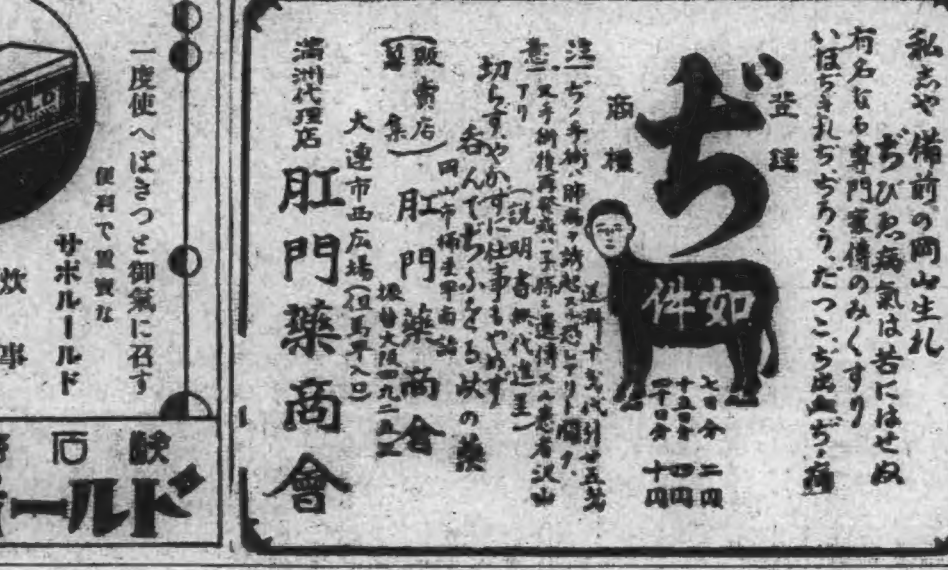 私しや備前の岡山生れ
ぢびゑ病氣は苦にはせぬ
有名なる専門家傳のみくすり
いぼぢきれぢ、ぢろう、だつこ、ぢ出血ぢ痛
登録
商標
ぢい
如件
七日分 二円
十五日分 四円
四十日分 十円
送料十戋代引廿五戋
注意
ぢノ手術ハ肺病ヲ誘起スル恐レアリト聞ク、
又手術後再発或ハ子孫ニ遺傳スル患者沢山
アリ (説明書無代進呈)
切らず、やかずに仕事もやめず
呑んでぢふをとる此の薬
(販賣店募集)
岡山市
肛門薬商會
振替大阪四九二五
大連市西広場(但馬早入口)
満洲代理店 肛門藥商會
一度使へばきつと御氣に召す
便利で重寶な
サボルールド
炊事
石鹸
ールド
OLD